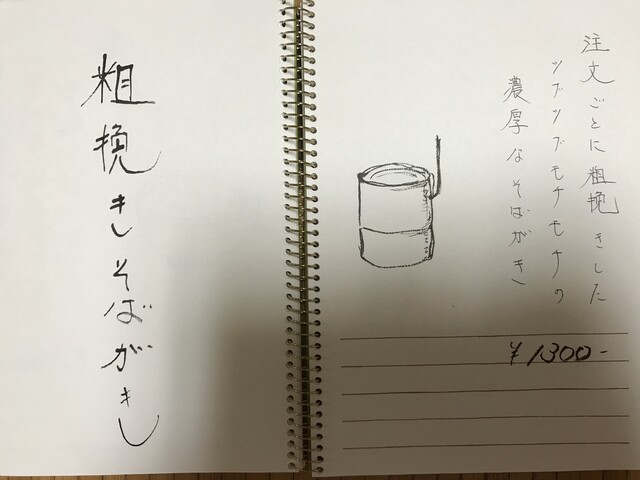 粗挽きそばがき
注文ごとに粗挽きした
ツブツブモチモチの
濃厚なそばがき
¥1300-